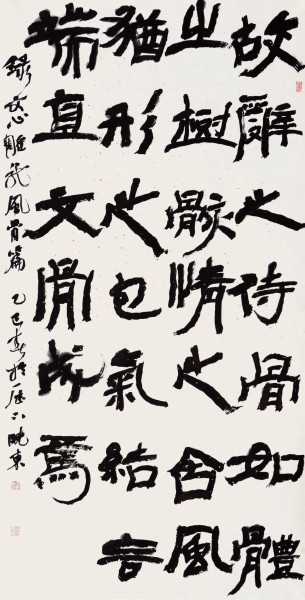 故辭之待骨如體
之樹骸情之含風
猶形之包氣結言
端直文骨成焉
錄文心雕龍風骨篇 乙巳春於歷下曉東